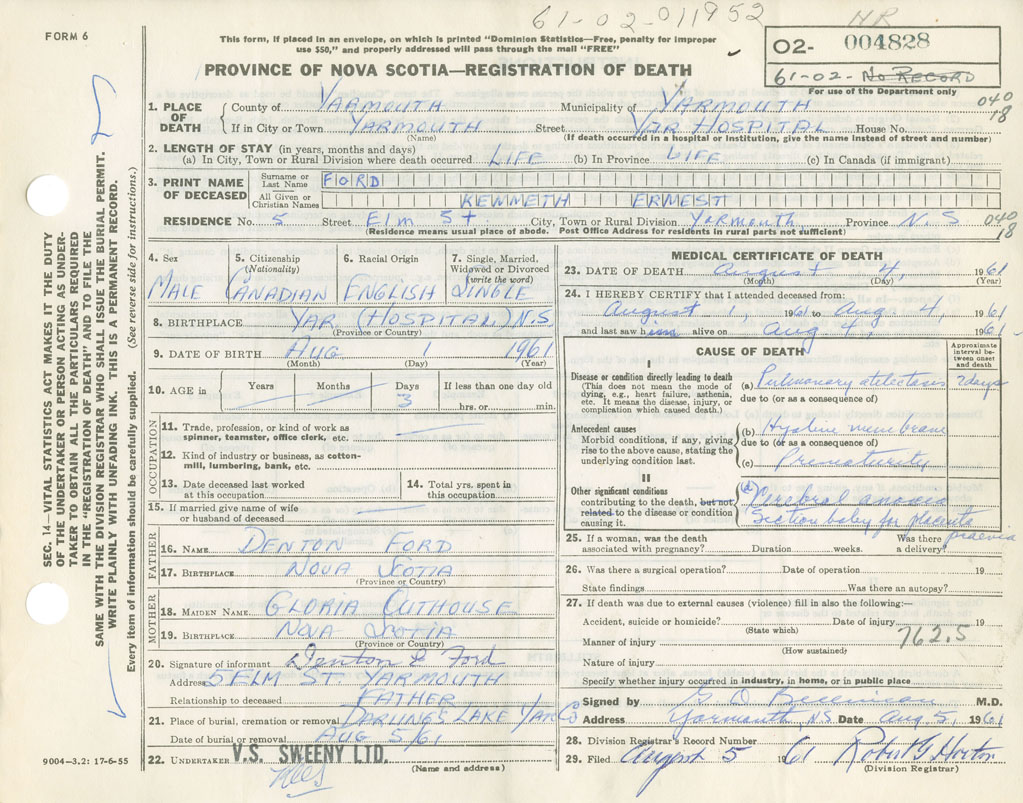 61-02-011952
HR
FORM 6
This form, if placed in an envelope, on which is printed "Dominion Statistics—Free, penalty for improper
use $50," and properly addressed will pass through the mail "FREE"
02- 004828
61-02- No RECORD
For use of the Department only
PROVINCE OF NOVA SCOTIA—REGISTRATION OF DEATH
040
18
1. PLACE OF DEATH
County of YARMOUTH Municipality of YARMOUTH
If in City or Town YARMOUTH Street YAR HOSPITAL House No.
(Name) (If death occurred in a hospital or institution, give the name instead of street and number)
2. LENGTH OF STAY (in years, months and days)
(a) In City, Town or Rural Division where death occurred LIFE (b) In Province LIFE (c) In Canada (if immigrant)
3. PRINT NAME OF DECEASED
Surname or Last Name FORD
All Given or Christian Names KENNETH ERNEST
RESIDENCE No. 5 Street Elm St. City, Town or Rural Division Yarmouth Province N.S. 040
18
(Residence means usual place of abode. Post Office Address for residents in rural parts not sufficient)
4. Sex
MALE
5. Citizenship
(Nationality)
CANADIAN
6. Racial Origin
ENGLISH
7. Single, Married,
Widowed or Divorced
(write the word)
SINGLE
8. BIRTHPLACE YAR (HOSPITAL) N.S
(Province or Country)
9. DATE OF BIRTH AUG 1 1961
(Month) (Day) (Year)
10. AGE in Years Months Days If less than one day old
3 hrs. or min.
OCCUPATION
11. Trade, profession, or kind of work as
spinner, teamster, office clerk, etc.
12. Kind of industry or business, as cotton-
mill, lumbering, bank, etc.
13. Date deceased last worked
at this occupation
14. Total yrs. spent in
this occupation
15. If married give name of wife
or husband of deceased
FATHER
16. NAME DENTON FORD
17. BIRTHPLACE NOVA SCOTIA
(Province or Country)
MOTHER
18. MAIDEN NAME GLORIA OUTHOUSE
19. BIRTHPLACE NOVA SCOTIA
(Province or Country)
20. Signature of informant Denton L Ford
Address 5 ELM ST YARMOUTH
Relationship to deceased FATHER
21. Place of burial, cremation or removal DARLINGS LAKE YAR Co
Date of burial or removal AUG 5/61
22. UNDERTAKER V.S. SWEENY LTD.
(Name and address)
MEDICAL CERTIFICATE OF DEATH
23. DATE OF DEATH August 4, 1961
(Month) (Day) (Year)
24. I HEREBY CERTIFY that I attended deceased from:
August 1, 1961 to Aug. 4, 1961
and last saw him alive on Aug 4, 1961
CAUSE OF DEATH
Approximate
interval be-
tween onset
and death
I
Disease or condition directly leading to death
(This does not mean the mode of
dying, e.g., heart failure, asthenia,
etc. It means the disease, injury, or
complication which caused death.)
(a) Pulmonary atelectasis days
due to (or as a consequence of)
Antecedent causes
Morbid conditions, if any, giving
rise to the above cause, stating the
underlying condition last.
(b) Hyaline membrane
due to (or as a consequence of)
(c) Prematurity
II
Other significant conditions
contributing to the death, but not
related to the disease or condition
causing it.
(d) Cerebral anoxia
Section baby for placenta
praevia
25. If a woman, was the death
associated with pregnancy? Duration weeks.
Was there
a delivery?
26. Was there a surgical operation? Date of operation 19
State findings Was there an autopsy?
27. If death was due to external causes (violence) fill in also the following:—
Accident, suicide or homicide? Date of injury 19
(State which)
762.5
Manner of injury
(How sustained)
Nature of injury
Specify whether injury occurred in industry, in home, or in public place
Signed by M.D.
Address Yarmouth, N.S Date Aug. 5, 1961
28. Division Registrar's Record Number
29. Filed August 5 1961 Robert G Horton
(Division Registrar)
SEC. 14—VITAL STATISTICS ACT MAKES IT THE DUTY
OF THE UNDERTAKER OR PERSON ACTING AS UNDER-
TAKER TO OBTAIN ALL THE PARTICULARS REQUIRED
IN THE "REGISTRATION OF DEATH" AND TO FILE THE
SAME WITH THE DIVISION REGISTRAR WHO SHALL ISSUE THE BURIAL PERMIT.
WRITE PLAINLY WITH UNFADING INK. THIS IS A PERMANENT RECORD.
Every item of information should be carefully supplied. (See reverse side for instructions.)
9004—3.2: 17-6-55